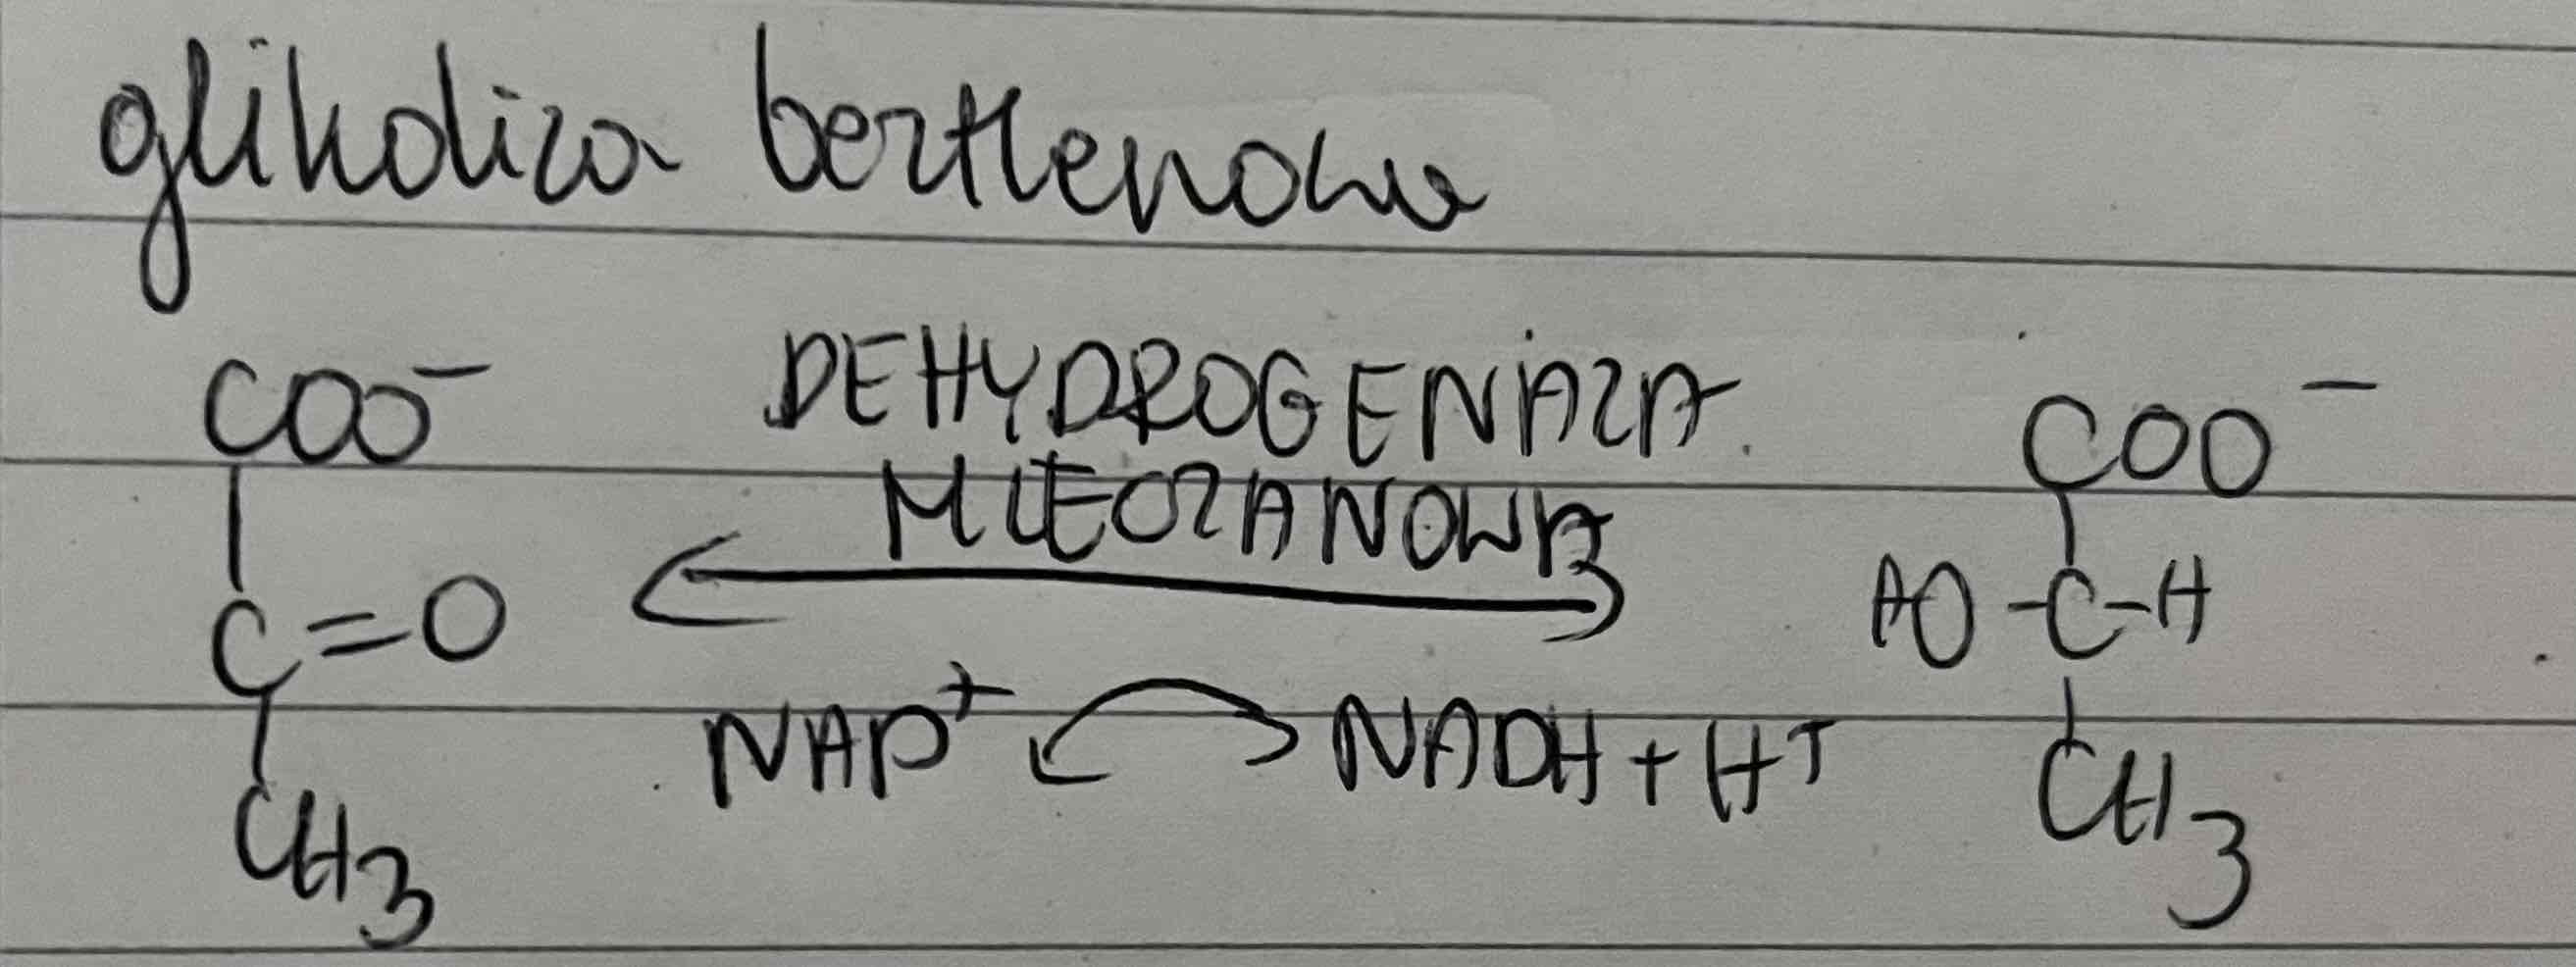 glikoliza beztlenowa
COO⁻ DEHYDROGENAZA COO⁻
MLECZANOWA
C=O HO-C-H
NAD⁺ NADH + H⁺
CH₃ CH₃